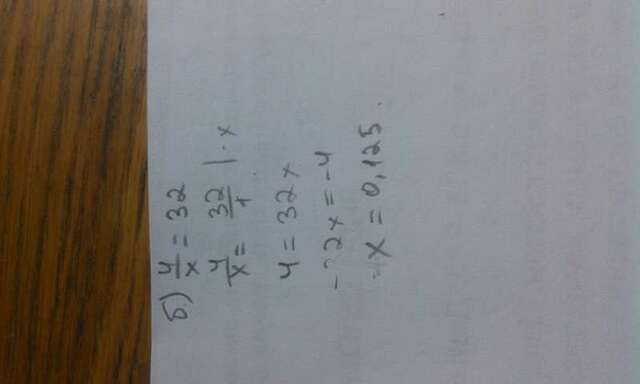 б) 4/x = 32
4/x = 32/1 | · x
4 = 32x
-32x = -4
x = 0,125.